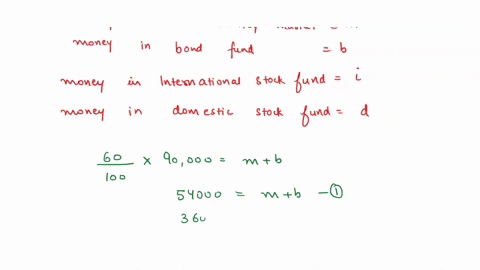 money in bond fund = b
money in International stock fund = i
money in domestic stock fund = d
60/100 × 90,000 = m+b
54000 = m+b - ①
360